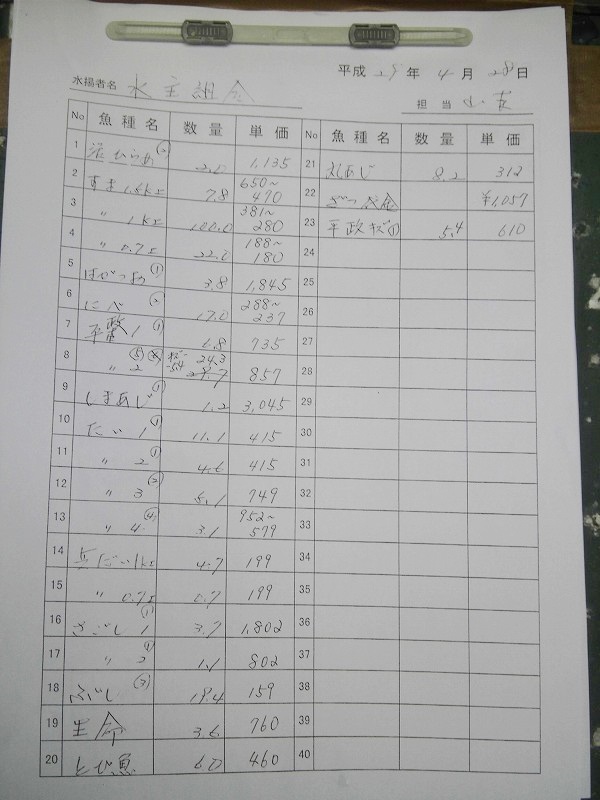 平成 29 年 4 月 28 日
水揚者名 水主組合
担当
No 魚種名 数量 単価 No 魚種名 数量 単価
1 ② 1,135 21 丸あじ 8.2 312
2 すずき1.5k上 7.8 650~470 22 ¥1,057
3 〃 1k上 100.0 381~280 23 平政 ① 5.4 610
4 〃 0.7上 188~180 24
5 はがつお ① 3.8 1,845 25
6 にべ ② 17.0 288~237 26
7 平政 1 ① 735 27
8 〃 2 ⑤ 24.3 857 28
9 しまあじ ① 1.2 3,045 29
10 たい 1 ① 11.1 415 30
11 〃 2 ① 4.6 415 31
12 〃 3 ② 749 32
13 〃 4 ④ 3.1 952~579 33
14 1k上 4.7 199 34
15 〃 0.7上 0.7 199 35
16 さごし 1 ① 3.7 1,802 36
17 〃 2 1.1 802 37
18 ③ 159 38
19 3.6 760 39
20 とび魚 6.0 460 40